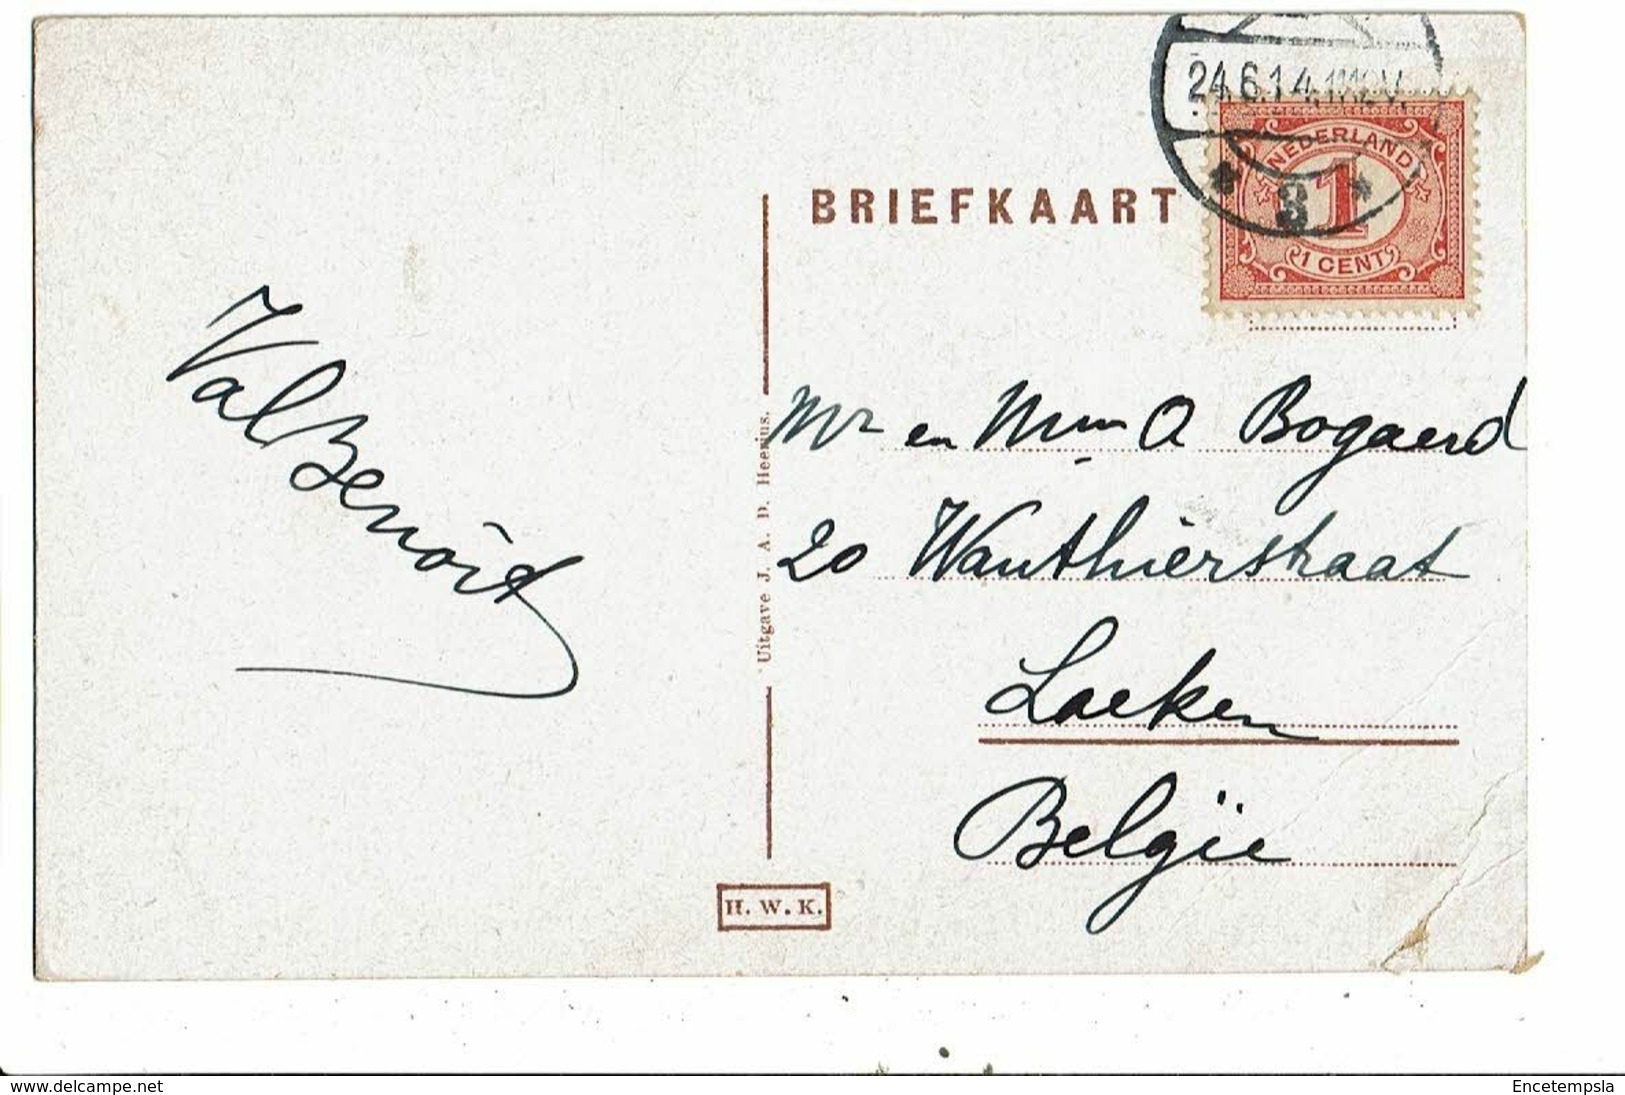 24.6.14.
NEDERLAND
3
1
1 CENT
BRIEFKAART
Val Benoit
Uitgave J. A. D. Heenius.
Mr en Mm A Bogaerd
20 Wauthierstraat
Laeken
België
H. W. K.
www.delcampe.net
Encetempsla